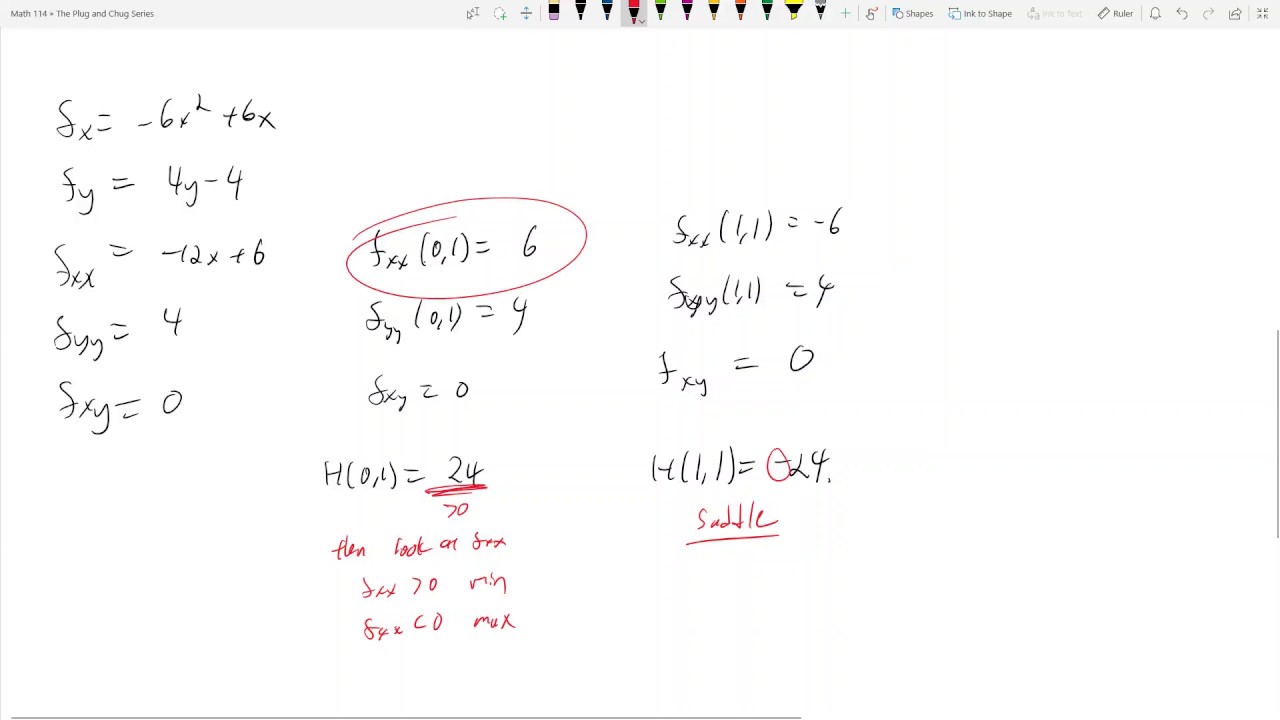 Math 114 » The Plug and Chug Series
Shapes
Ink to Shape
Ink to Text
Ruler
fx = -6x² + 6x
fy = 4y - 4
fxx = -12x + 6
fyy = 4
fxy = 0
fxx (0,1) = 6
fyy (0,1) = 4
fxy = 0
H(0,1) = 24
>0
then look at fxx
fxx > 0 min
fxx < 0 max
fxx (1,1) = -6
fyy (1,1) = 4
fxy = 0
H(1,1) = -24.
saddle